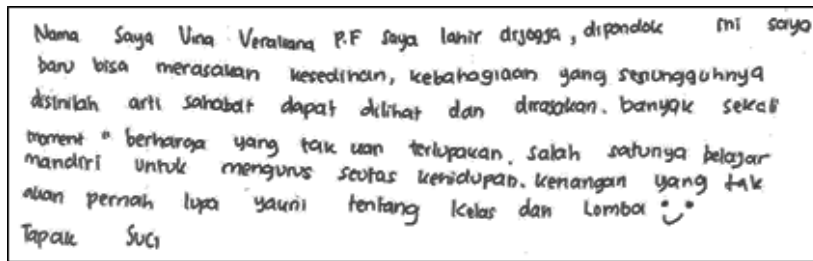 Nama Saya Vina Veraliana P.F Saya lahir dijogja, dipondok ini saya
baru bisa merasakan kesedihan, kebahagiaan yang sesungguhnya
disinilah arti sahabat dapat dilihat dan dirasakan. banyak sekali
moment " berharga yang tak kan terlupakan. salah satunya belajar
mandiri untuk mengurus seutas kehidupan. kenangan yang tak
akan pernah lupa yakni tentang kelas dan Lomba
Tapak Suci